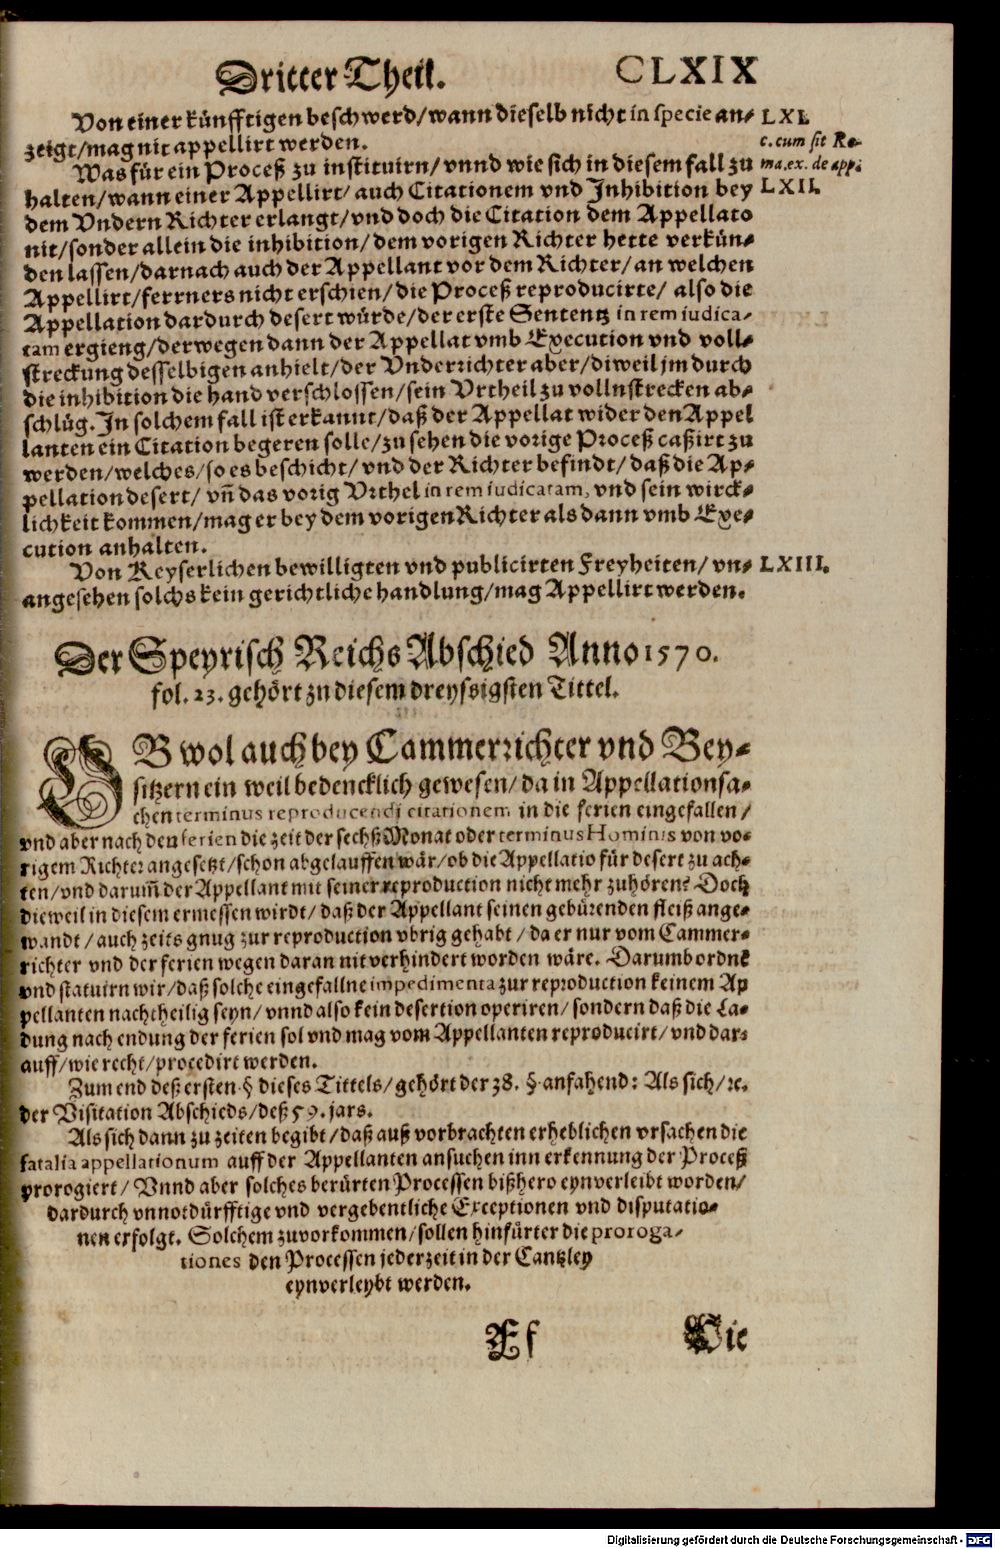 Dritter Theil. CLXIX
Von einer künfftigen beschwerd/wann dieselb nicht in specie an= LXI.
zeigt/mag nit appellirt werden. c. cum sit Ro-
Was für ein Proceß zu instituirn/vnnd wie sich in diesem fall zu ma. ex. de app.
halten/wann einer Appellirt/auch Citationem vnd Inhibition bey LXII.
dem Vndern Richter erlangt/vnd doch die Citation dem Appellato
nit/sonder allein die inhibition/dem vorigen Richter hette verkün=
den lassen/darnach auch der Appellant vor dem Richter/an welchen
Appellirt/ferrners nicht erschien/die Proceß reproducirte/ also die
Appellation dardurch desert würde/der erste Sententz in rem iudica-
tam ergieng/derwegen dann der Appellat vmb Execution vnd voll=
streckung desselbigen anhielt/der Vnderrichter aber/diweil jm durch
die inhibition die hand verschlossen/sein Vrtheil zu vollnstrecken ab=
schlüg. In solchem fall ist erkannt/daß der Appellat wider den Appel
lanten ein Citation begeren solle/zu sehen die vorige Proceß caßirt zu
werden/welches/so es beschicht/vnd der Richter befindt/daß die Ap=
pellation desert/ vñ das vorig Vrthel in rem iudicatam, vnd sein wirck=
lichkeit kommen/mag er bey dem vorigen Richter als dann vmb Exe=
cution anhalten.
Von Keyserlichen bewilligten vnd publicirten Freyheiten/ vn= LXIII.
angesehen solchs kein gerichtliche handlung/mag Appellirt werden.
Der Speyrisch Reichs Abschied Anno 1570.
fol. 23. gehört zu diesem dreyssigsten Tittel.
OB wol auch bey Cammerrichter vnd Bey=
sitzern ein weil bedencklich gewesen/da in Appellationsa=
chen terminus reproducendi citationem in die ferien eingefallen/
vnd aber nach den ferien die zeit der sechß Monat oder terminus Hominis von vo=
rigem Richter angesetzt/schon abgelauffen wär/ob die Appellatio für desert zu ach=
ten/vnd darum̃ der Appellant mit seiner reproduction nicht mehr zuhören? Doch
dieweil in diesem ermessen wirdt/daß der Appellant seinen gebürenden fleiß ange=
wandt/auch zeits gnug zur reproduction vbrig gehabt/da er nur vom Cammer=
richter vnd der ferien wegen daran nit verhindert worden wäre. Darumb ordnẽ
vnd statuirn wir/daß solche eingefallne impedimenta zur reproduction keinem Ap
pellanten nachtheilig seyn/vnnd also kein desertion operiren/sondern daß die La=
dung nach endung der ferien sol vnd mag vom Appellanten reproducirt/vnd dar=
auff/wie recht/procedirt werden.
Zum end deß ersten § dieses Tittels/gehört der 38. § anfahend: Als sich/ꝛc.
der Visitation Abschieds/deß 59. jars.
Als sich dann zu zeiten begibt/daß auß vorbrachten erheblichen vrsachen die
fatalia appellationum auff der Appellanten ansuchen inn erkennung der Proceß
prorogiert/ Vnnd aber solches berürten Processen bißhero eynverleibt worden/
dardurch vnnotdürfftige vnd vergebentliche Exceptionen vnd disputatio=
nen erfolgt. Solchem zuvorkommen/sollen hinfürter die proroga-
tiones den Processen jederzeit in der Cantzley
eynverleybt werden.
Ff Die
Digitalisierung gefördert durch die Deutsche Forschungsgemeinschaft - DFG